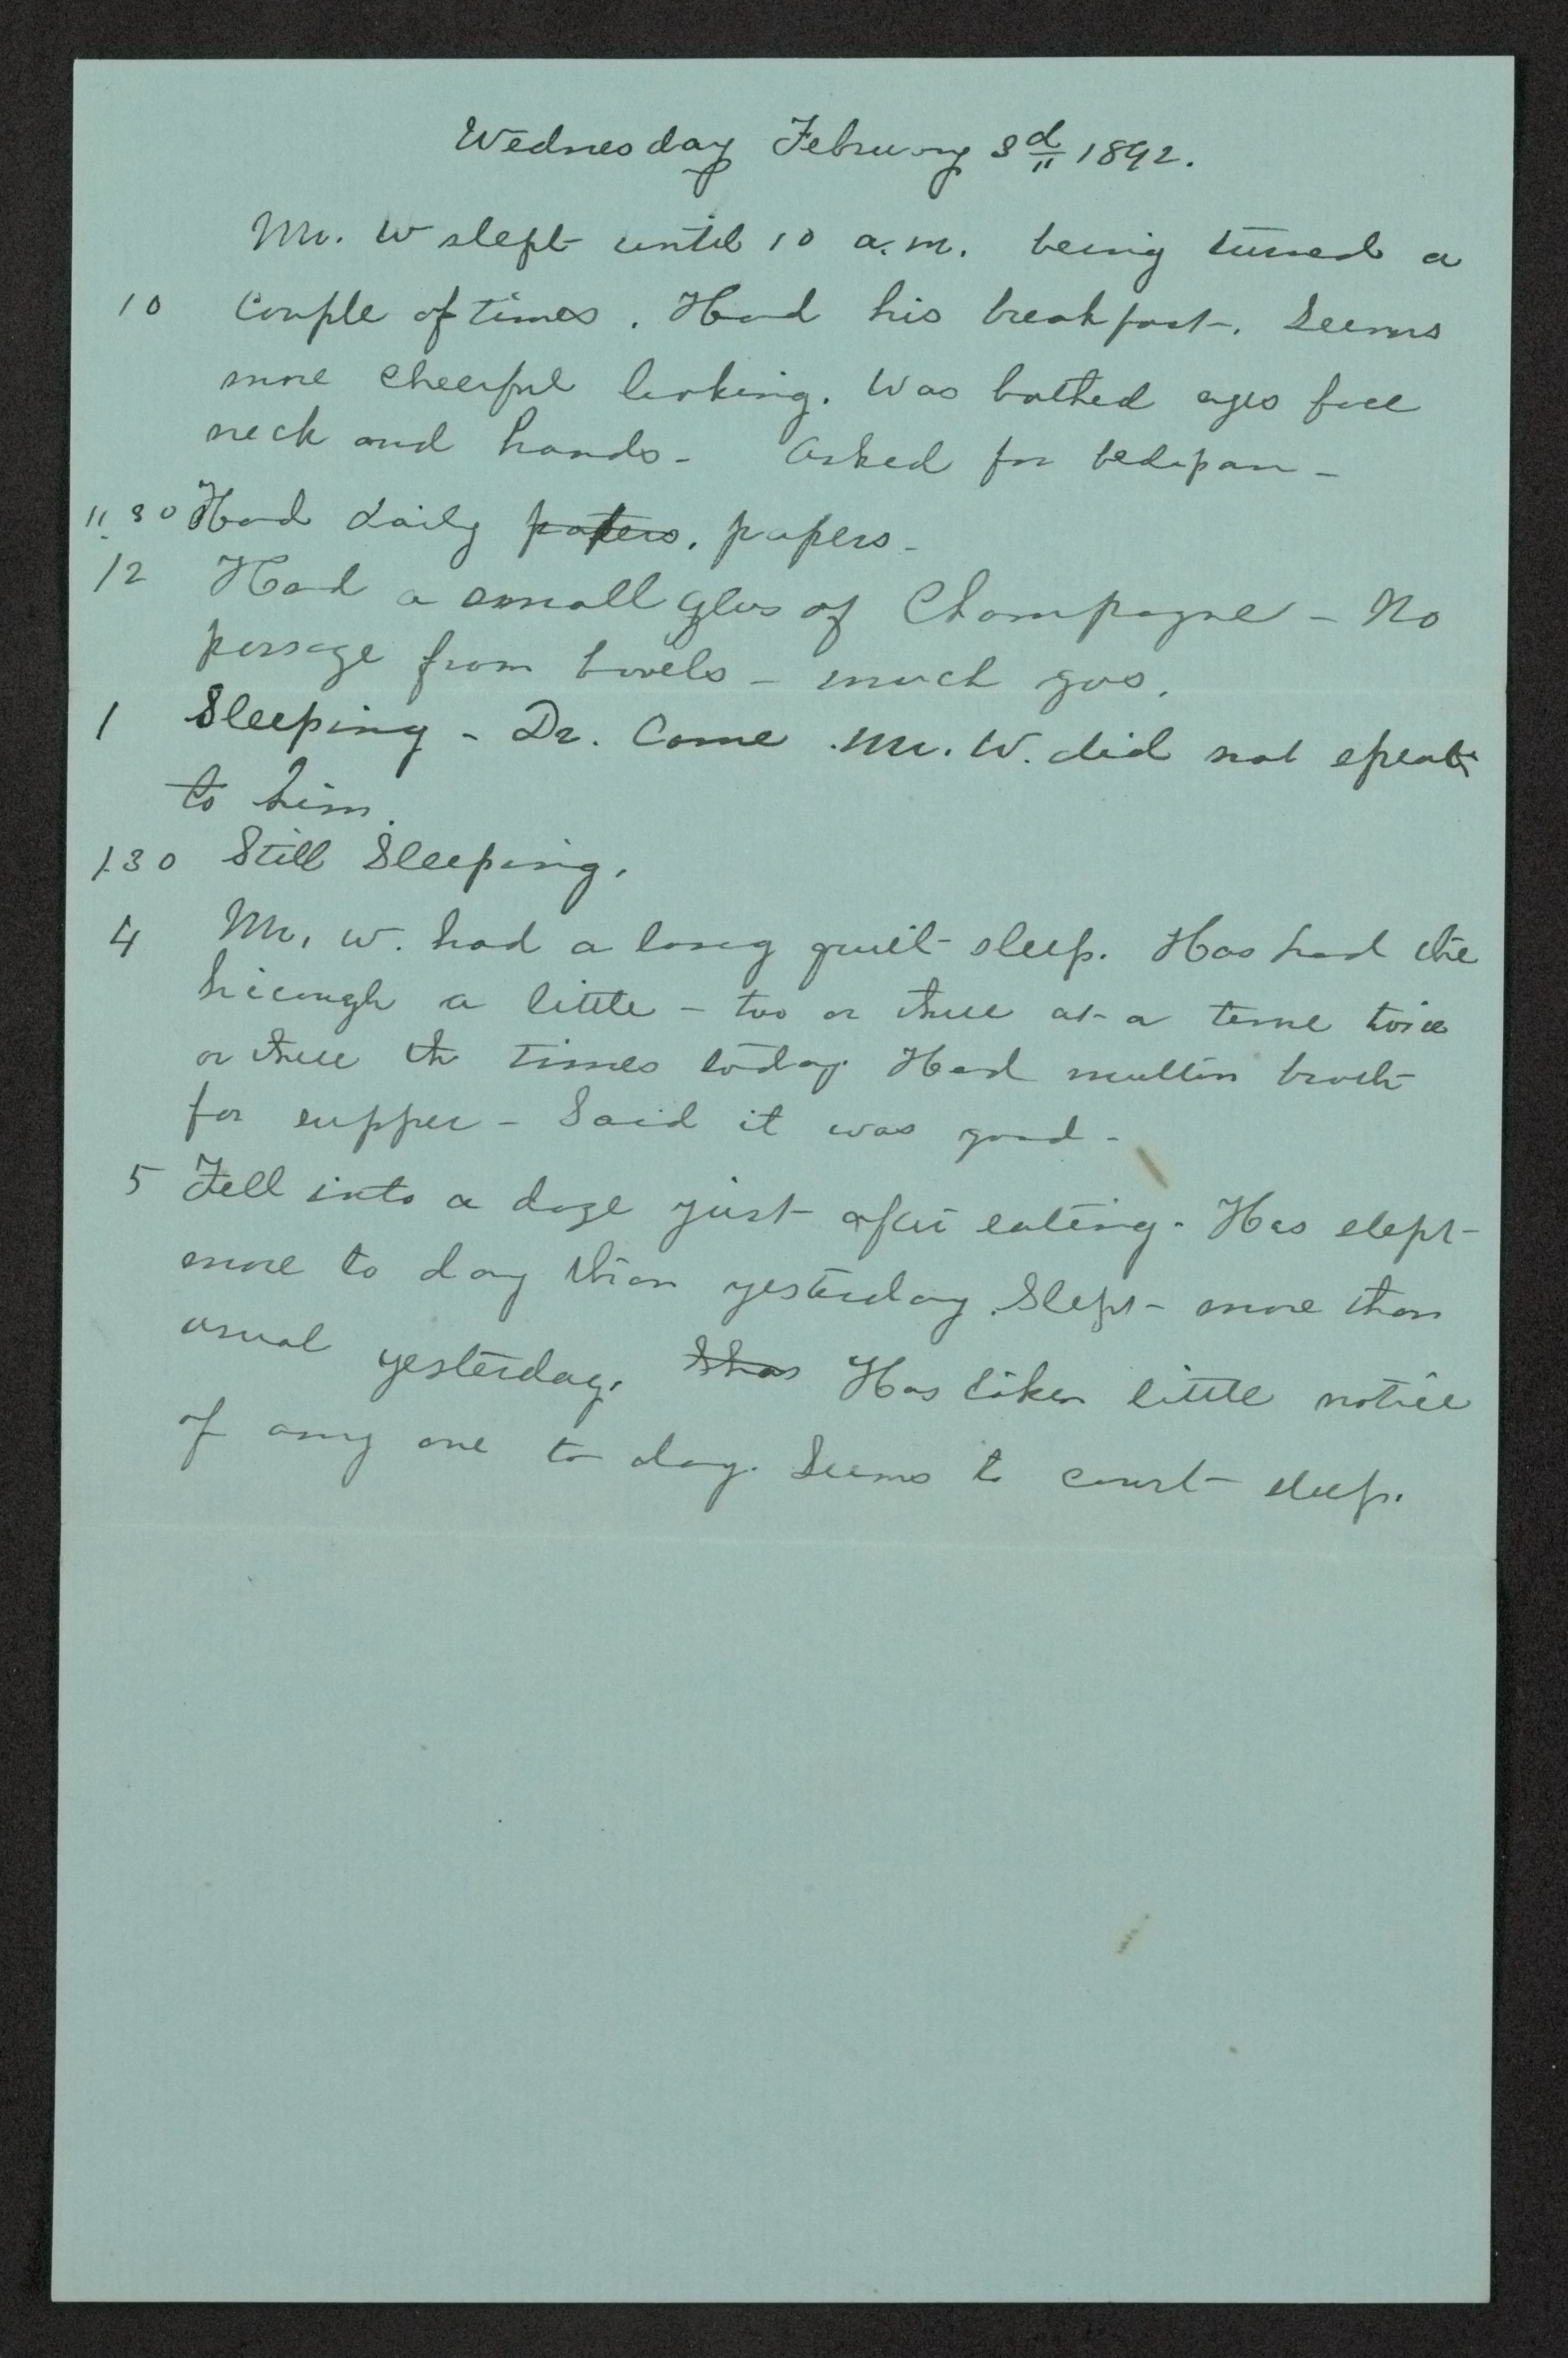 Wednesday February 3d 1892.
Mr. W slept until 10 a.m. being turned a
10 Couple of times. Had his breakfast-. Seems
more cheerful looking. Was bathed eyes face
neck and hands - Asked for bedpan -
11.30 Had daily papers. papers -
12 Had a small glas of Champagne - No
passage from bowels - much gas.
1 Sleeping - Dr. Came Mr. W. did not speak
to him.
1.30 Still Sleeping.
4 Mr. W. had a long quiet sleep. Has had the
hiccough a little - two or three at a time twice
or three th times today Had mutton broth
for supper - Said it was good -
5 Fell into a doze just after eating. Has slept
more to day than yesterday. Slept more than
usual yesterday. Has taken little notice
of any one to day. Seems to court sleep.